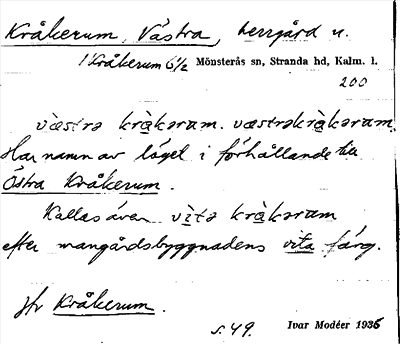 Kråkerum, Västra, herrgård u.
1 Kråkerum 6 1/2 Mönsterås sn, Stranda hd, Kalm. l.
200
västrə kràkərum. væstrəkràkərum.
Har namn av läget i förhållande till
Östra Kråkerum.
Kallas även vìtə kràkərum
efter mangårdsbyggnadens vita färg.
Jfr Kråkerum.
s. 49. Ivar Modéer 1935